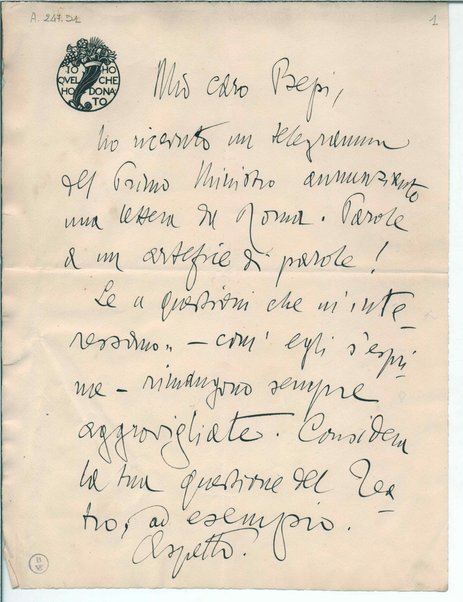 A. 247.91
1
IO HO
QVEL CHE
HO DONA
TO
Mio caro Bepi,
ho ricevuto un telegramma
del Primo Ministro annunziante
una lettera da Roma. Parole
a un artefice di parole!
Le « questioni che m'inte-
ressano » – com' egli s'espri-
me – rimangono sempre
aggrovigliate. Considera
la tua questione del Tea-
tro, ad esempio.
Aspetto.